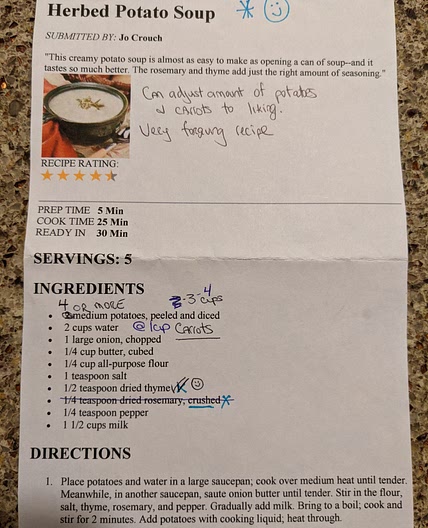 Herbed Potato Soup
SUBMITTED BY: Jo Crouch
"This creamy potato soup is almost as easy to make as opening a can of soup--and it
tastes so much better. The rosemary and thyme add just the right amount of seasoning."
Can adjust amount of potatoes
& carrots to liking.
Very forgving recipe
RECIPE RATING:
PREP TIME 5 Min
COOK TIME 25 Min
READY IN 30 Min
SERVINGS: 5
INGREDIENTS
4 OR MORE 3-4 cups
medium potatoes, peeled and diced
2 cups water @ 1cup Carrots
1 large onion, chopped
1/4 cup butter, cubed
1/4 cup all-purpose flour
1 teaspoon salt
1/2 teaspoon dried thyme
1/4 teaspoon dried rosemary, crushed
1/4 teaspoon pepper
1 1/2 cups milk
DIRECTIONS
1. Place potatoes and water in a large saucepan; cook over medium heat until tender.
Meanwhile, in another saucepan, saute onion butter until tender. Stir in the flour,
salt, thyme, rosemary, and pepper. Gradually add milk. Bring to a boil; cook and
stir for 2 minutes. Add potatoes with cooking liquid; heat through.